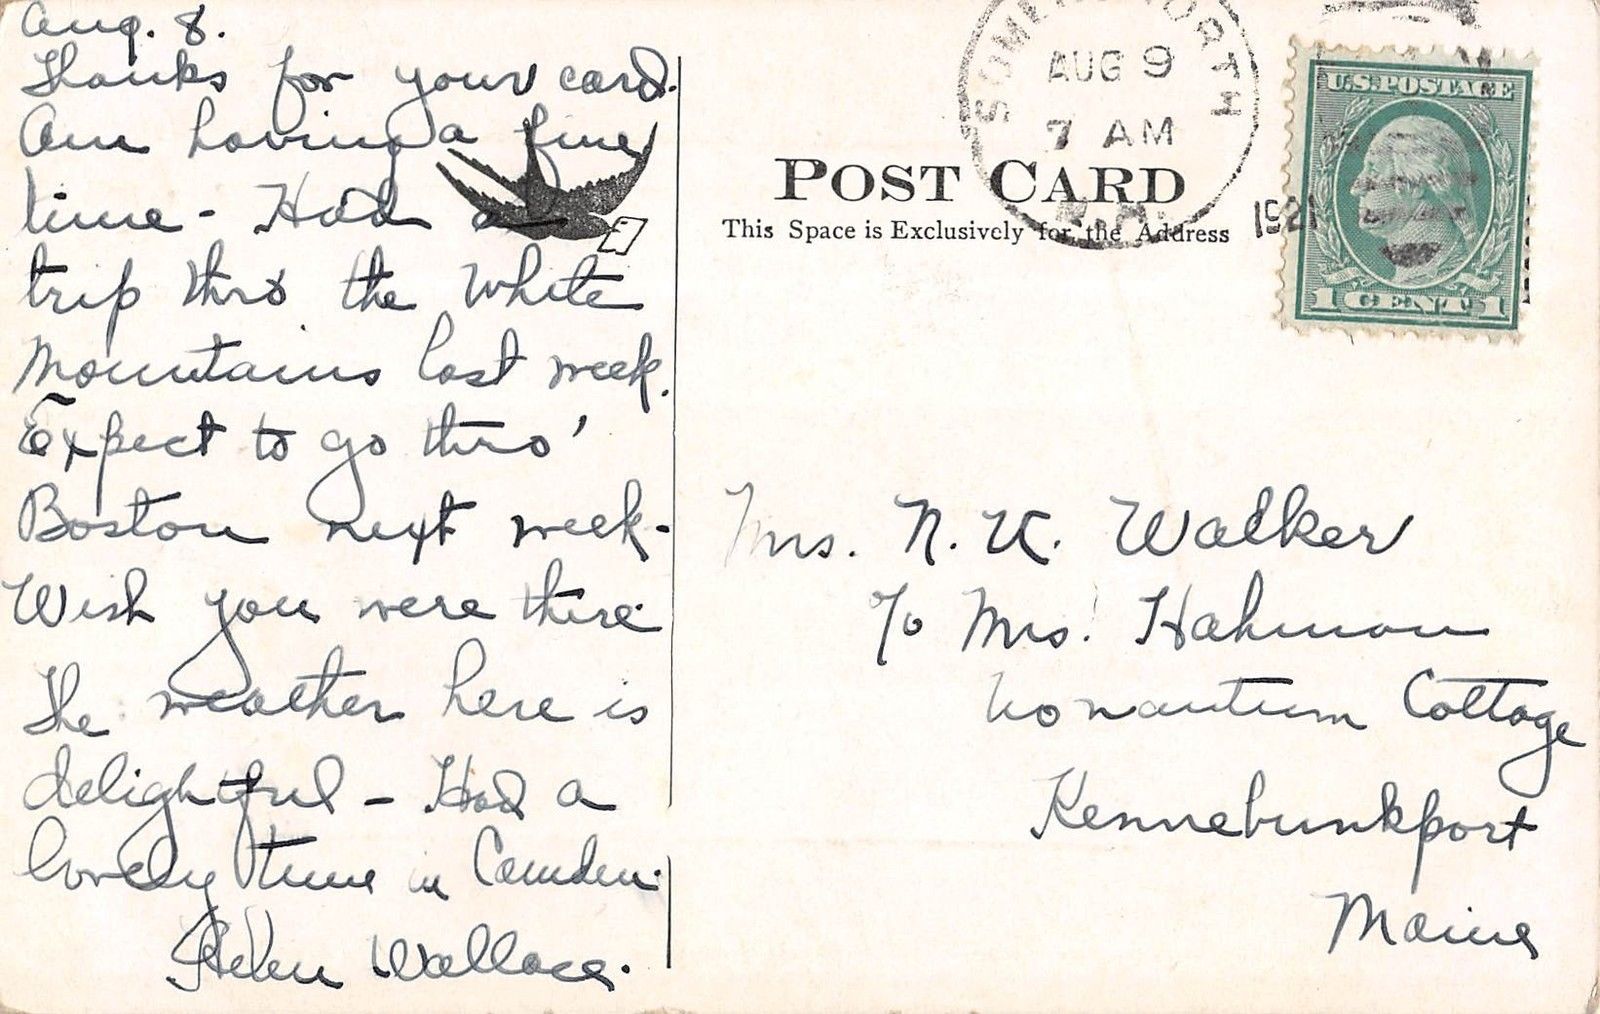 Aug. 8.
Thanks for your card.
Am having a fine
time - Had a
trip thro the White
Mountains last week.
Expect to go thro'
Boston next week -
Wish you were there.
The weather here is
delightful - Had a
lovely time in Camden.
Helen Wallace.
SOMERSWORTH
AUG 9
7 AM
1921
N.H.
U.S. POSTAGE
1 CENT 1
POST CARD
This Space is Exclusively for the Address
Mrs. N. K. Walker
c/o Mrs. Hahmon
Nonantum Cottage
Kennebunkport
Maine